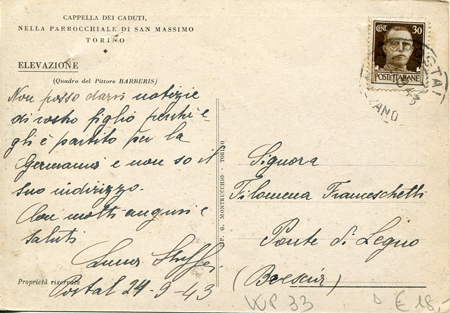 CAPPELLA DEI CADUTI,
NELLA PARROCCHIALE DI SAN MASSIMO
TORINO
ELEVAZIONE
(Quadro del Pittore BARBERIS)
Non posso darvi notizie
di vostro figlio perché e-
gli è partito per la
Germania e non so il
suo indirizzo.
Con molti auguri e
saluti
Postal 24-9-43
Proprietà riservata
IP. G. MONTRUCCHIO - TORINO
CENT. 30
POSTE ITALIANE
Signora
Filomena Franceschetti
Ponte di Legno
(Brescia)
WP 33
€ 18,-